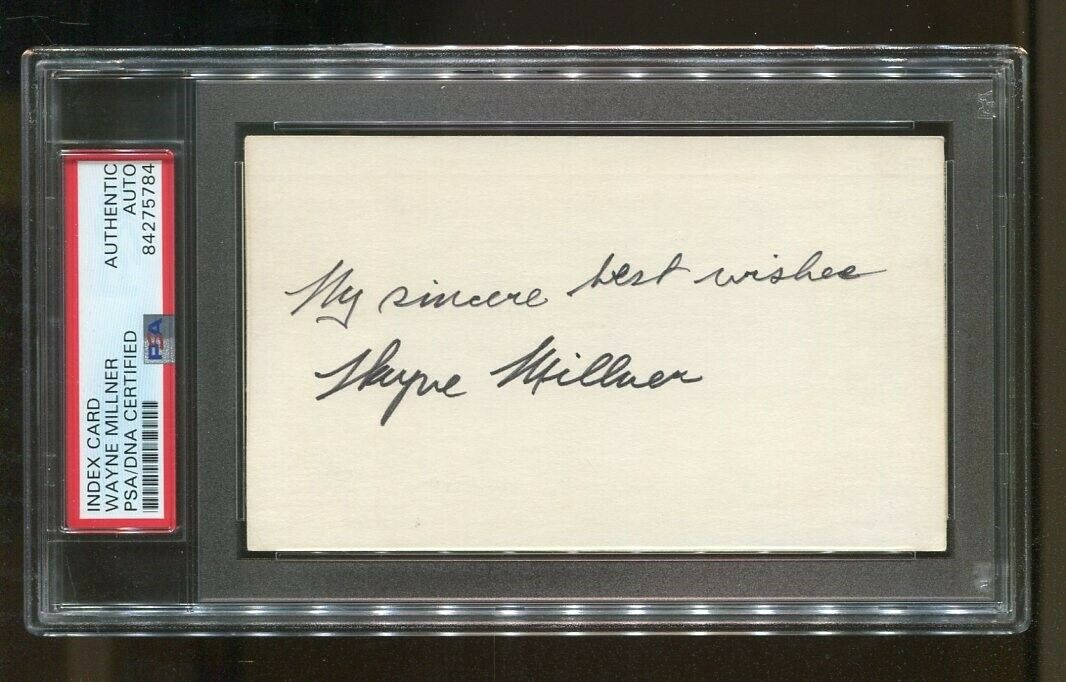 INDEX CARD
WAYNE MILLNER
PSA/DNA CERTIFIED
AUTHENTIC
AUTO
84275784
PSA
My sincere best wishes
Wayne Millner